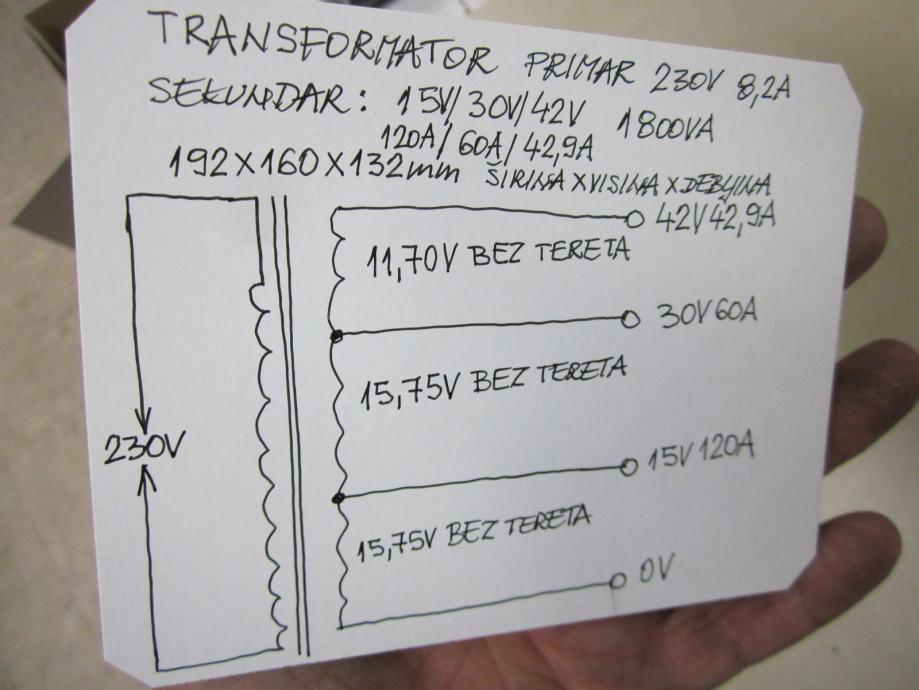 TRANSFORMATOR PRIMAR 230V 8,2A
SEKUNDAR: 15V/30V/42V 1800VA
120A/60A/42,9A
192X160X132mm ŠIRINA X VISINA X DEBLJINA
42V 42,9A
11,70V BEZ TERETA
30V 60A
15,75V BEZ TERETA
230V
15V 120A
15,75V BEZ TERETA
0V